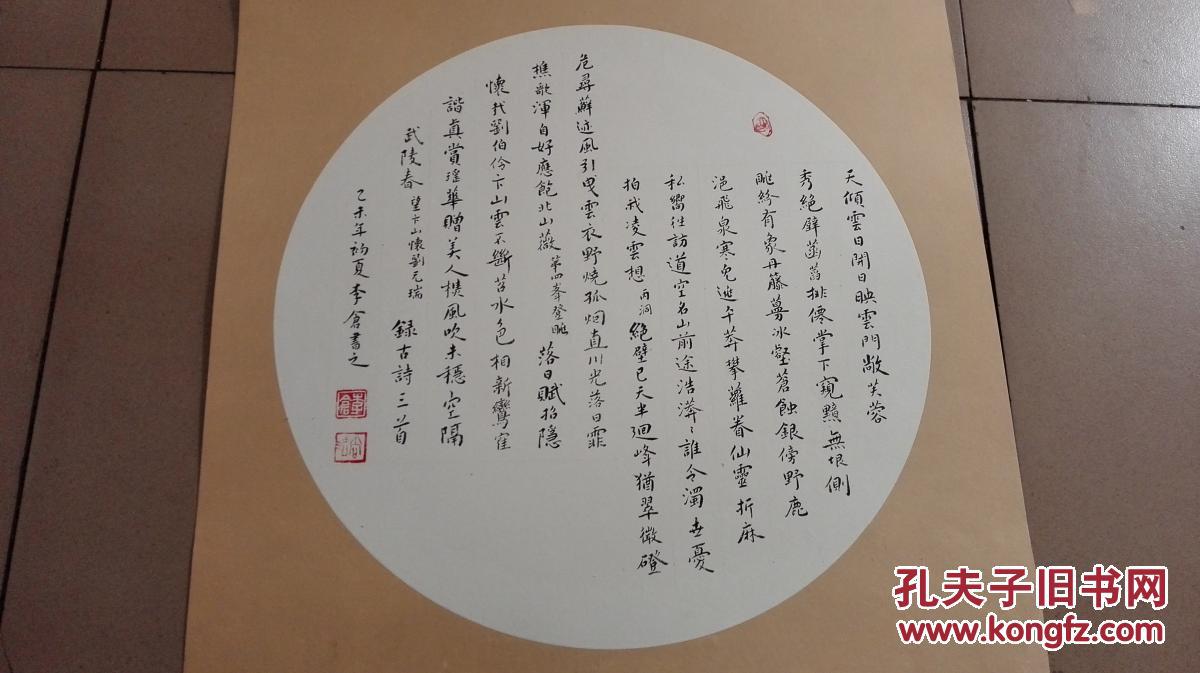 天傾雲日開日映雲門敞芙蓉
秀絕壁菡萏排僊掌下窺黯無垠側
眺紛有象丹藤蔓冰壑蒼蝕銀傍野鹿
浥飛泉寒兔遊午莽攀蘿眷仙靈折麻
私嚮往訪道空名山前途浩漭〻誰令濁世憂
拍我凌雲想 丙洞 絕壁已天半迴峰猶翠微磴
危尋蘚迹風引曳雲衣野燒孤烟直川光落日霏
樵歌渾自好應飽北山薇 第四峯登眺 落日賦招隱
懷我劉伯倫卞山雲不斷苕水色相新鸞隺
諧真賞瑤華贈美人樸風吹未穩空隔
武陵春 望卞山懷劉元瑞 録古詩三首
乙未年初夏李倉書之
李倉
孔夫子旧书网
www.kongfz.com